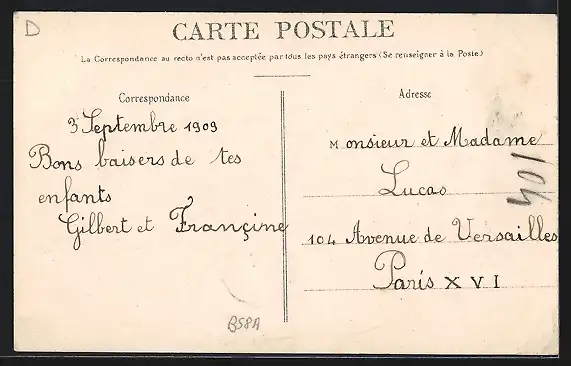 D
CARTE POSTALE
La Correspondance au recto n'est pas acceptée par tous les pays étrangers (Se renseigner à la Poste)
Correspondance
3 Septembre 1909
Bons baisers de tes
enfants
Gilbert et Françine
Adresse
Monsieur et Madame
Lucas
104 Avenue de Versailles
Paris XVI
104
B58A